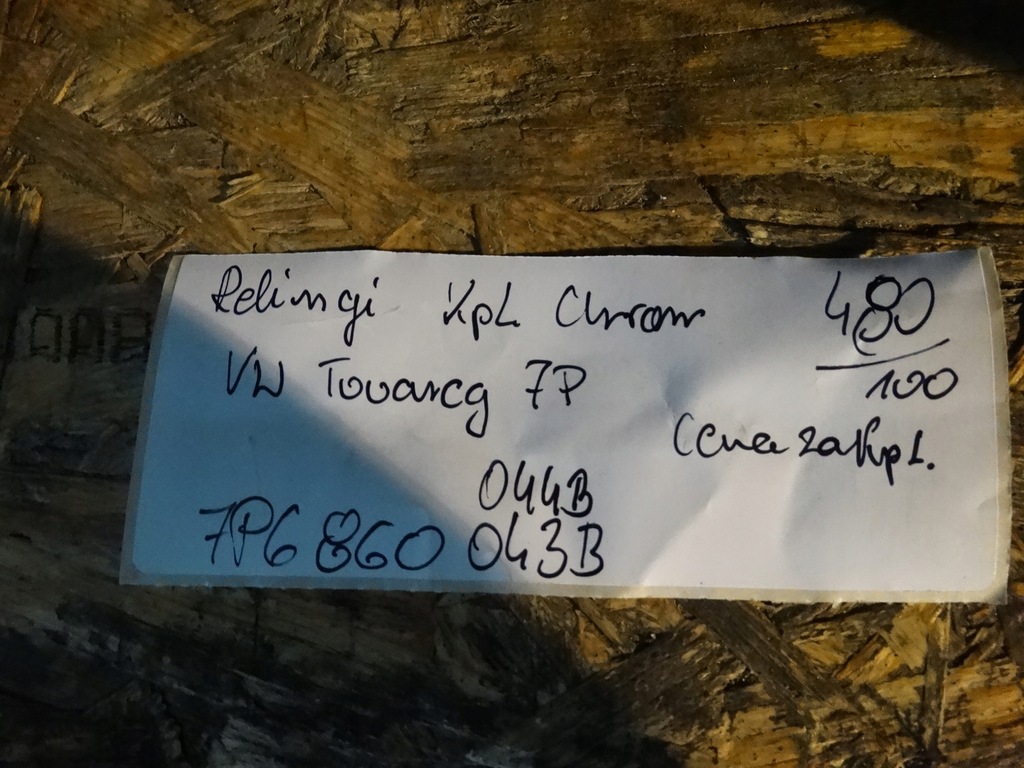 Relingi Kpl Chrom 480
VW Touareg 7P 100
Cena za kpl.
044B
7P6 860 043B